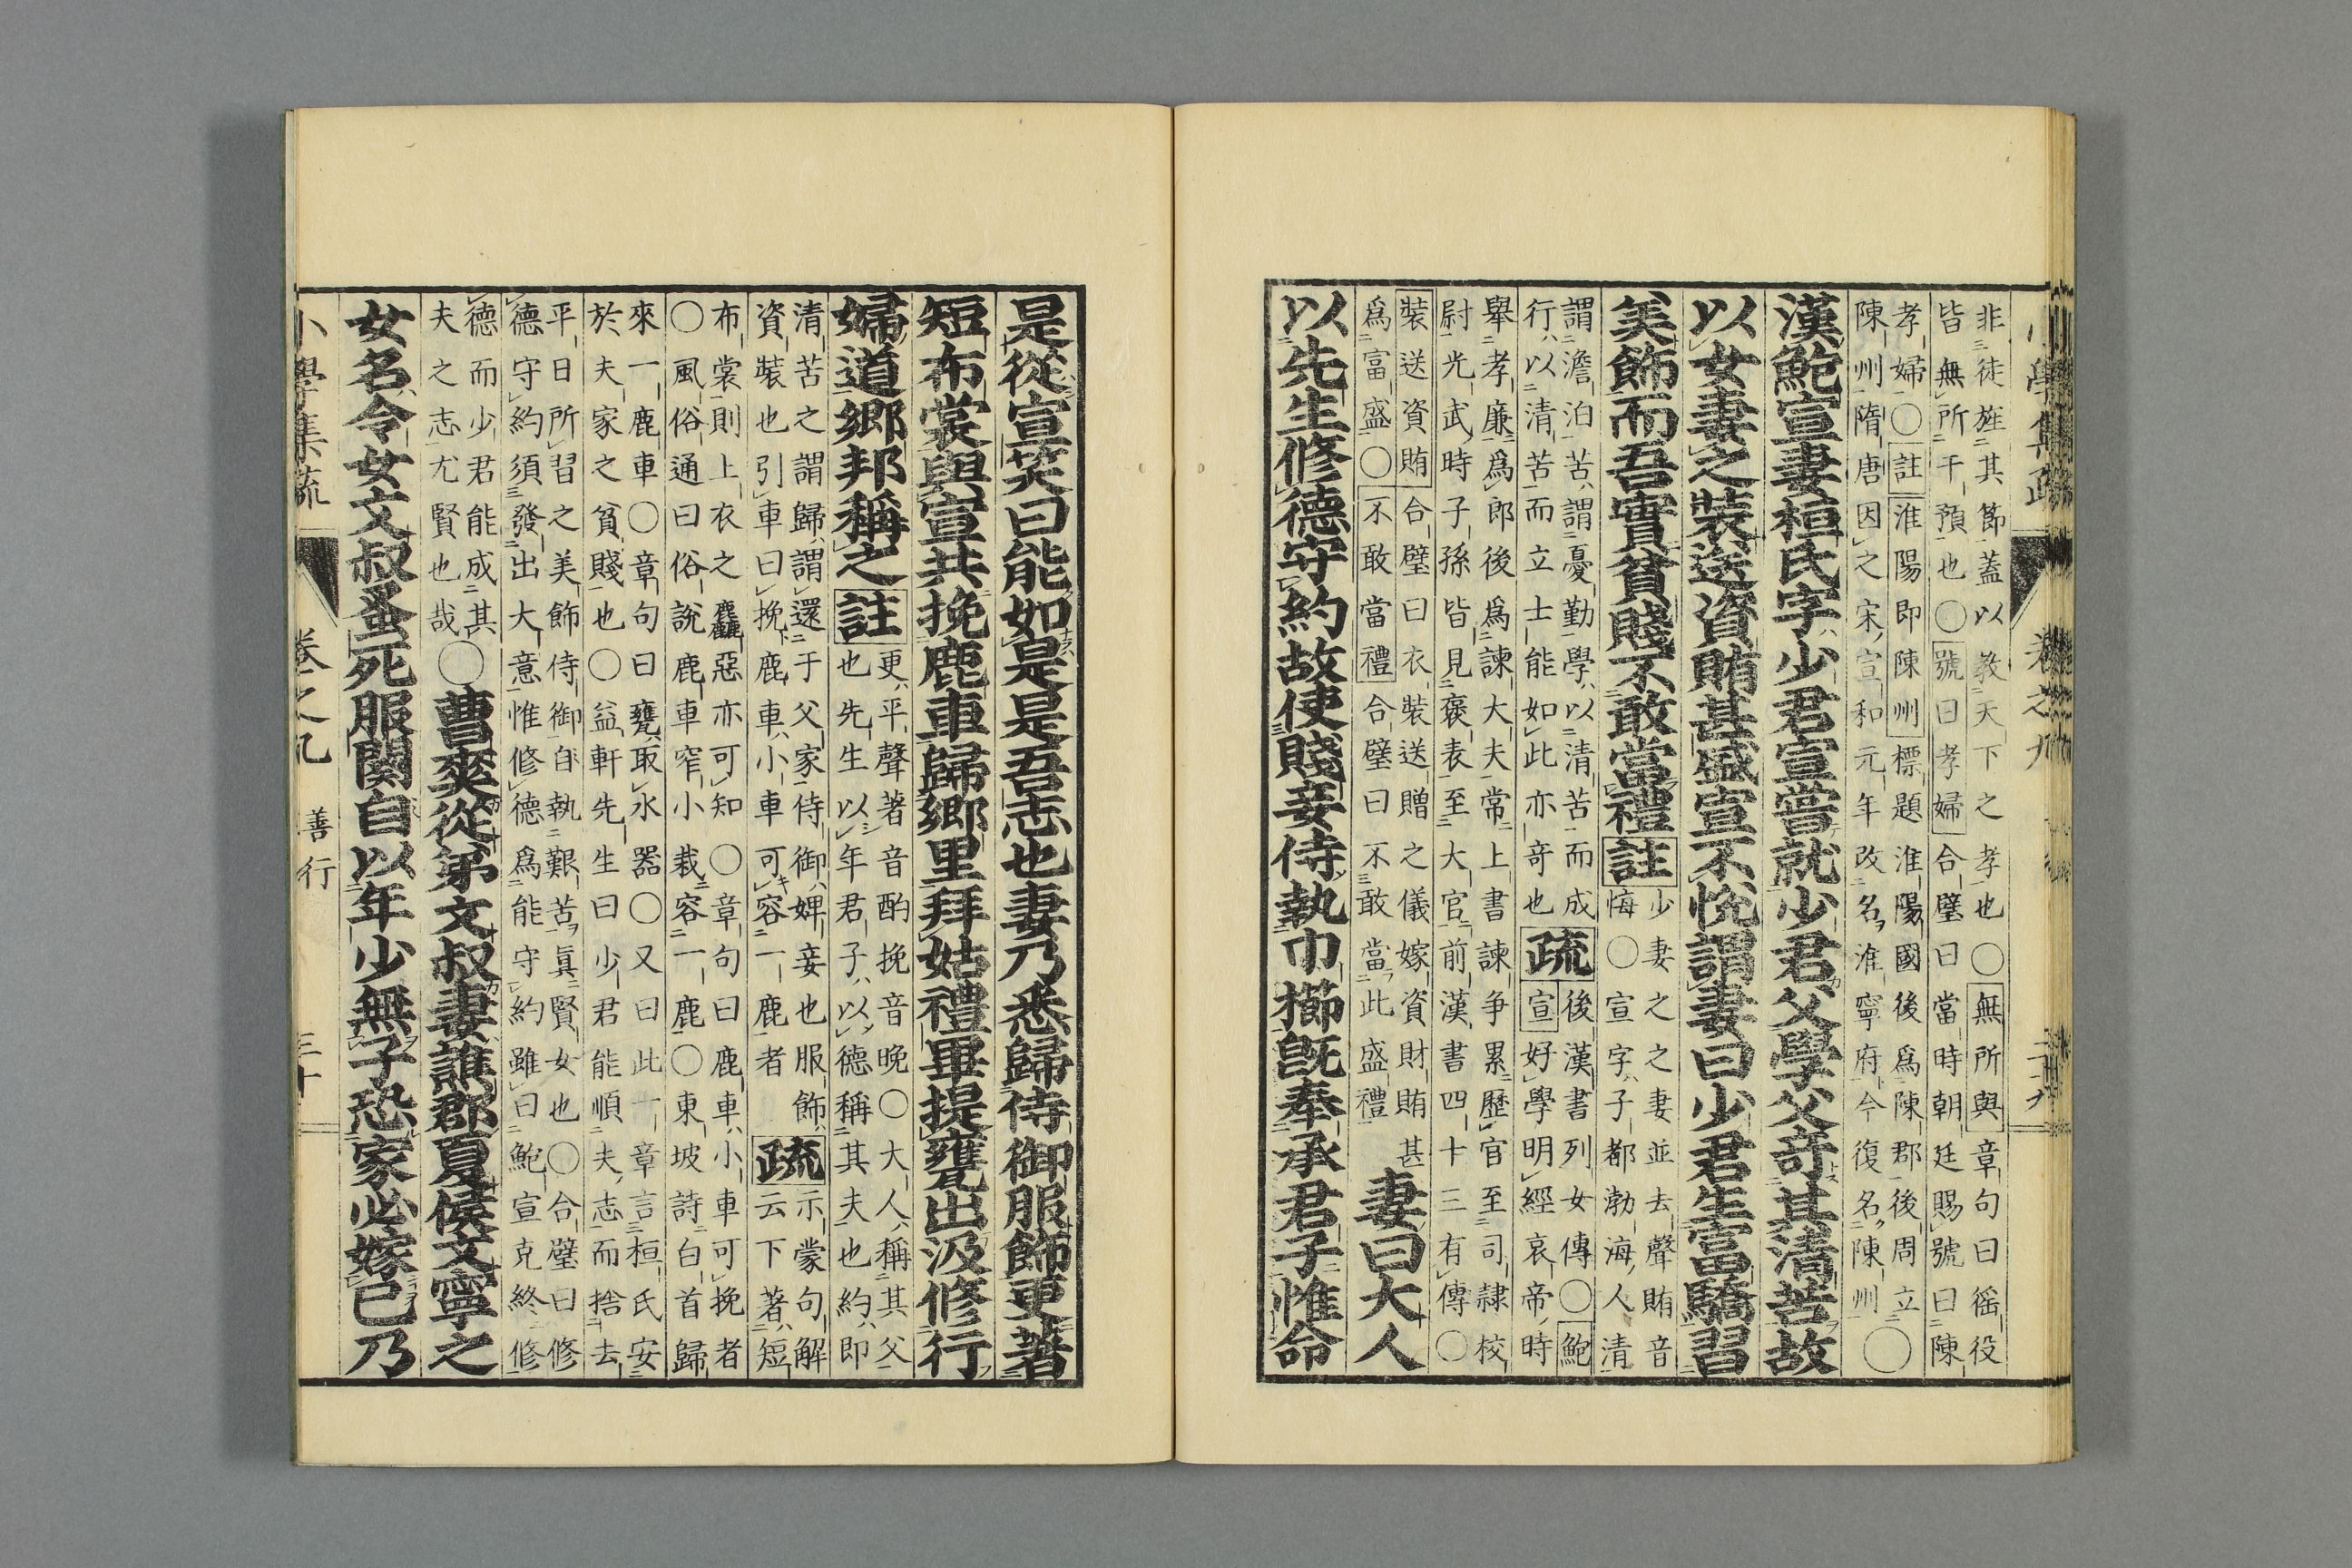 小學集疏　卷之九　二十九
非徒旌其節蓋以教天下之孝也〇無所與章句曰徭役
皆無所干預也〇號曰孝婦合璧曰當時朝廷賜號曰陳
孝婦〇註淮陽即陳州標題淮陽國後爲陳郡後周立
陳州隋唐因之宋宣和元年改名淮寧府今復名陳州〇
漢鮑宣妻桓氏字少君宣嘗就少君父學父奇其清苦故
以女妻之裝送資賄甚盛宣不悅謂妻曰少君生富驕習
美飾而吾實貧賤不敢當禮註
少妻之之妻並去聲賄音
悔〇宣字子都渤海人清
謂澹泊苦謂憂勤學以清苦而成
行以清苦而立士能如此亦奇也疏
後漢書列女傳〇鮑
宣好學明經哀帝時
舉孝廉爲郎後爲諫大夫常上書諫争累歷官至司隷校
尉光武時子孫皆見褒表至大官前漢書四十三有傳〇
裝送資賄合璧曰衣裝送贈之儀嫁資財賄甚
爲富盛〇不敢當禮合璧曰不敢當此盛禮
妻曰大人
以先生修德守約故使賤妾侍執巾櫛旣奉承君子惟命
是從宣笑曰能如是是吾志也妻乃悉歸侍御服飾更著
短布裳與宣共挽鹿車歸鄉里拜姑禮畢提甕出汲修行
婦道鄉邦稱之註
更平聲著音酌挽音晚〇大人稱其父
也先生以年君子以德稱其夫也約即
清苦之謂歸謂還于父家侍御婢妾也服飾
資裝也引車曰挽鹿車小車可容一鹿者
疏
示蒙句解
云下著短
布裳則上衣之麤惡亦可知〇章句曰鹿車小車可挽者
〇風俗通曰俗說鹿車窄小栽容一鹿〇東坡詩白首歸
來一鹿車〇章句曰甕取水器〇又曰此一章言桓氏安
於夫家之貧賤也〇益軒先生曰少君能順夫志而捨去
平日所習之美飾侍御自執艱苦眞賢女也〇合璧曰修
德守約須發出大意惟修德爲能守約雖曰鮑宣克終修
德而少君能成其
夫之志尤賢也哉
〇曹爽從弟文叔妻譙郡夏侯文寧之
女名令女文叔蚤死服闋自以年少無子恐家必嫁已乃
小學集疏　卷之九　善行　三十